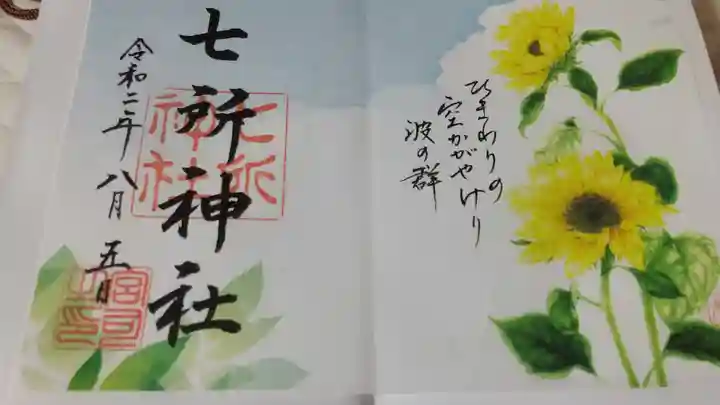 ひまわりの
空かがやけり
波の群
七所神社
令和二年八月五日
七所
神社
宮司
之印